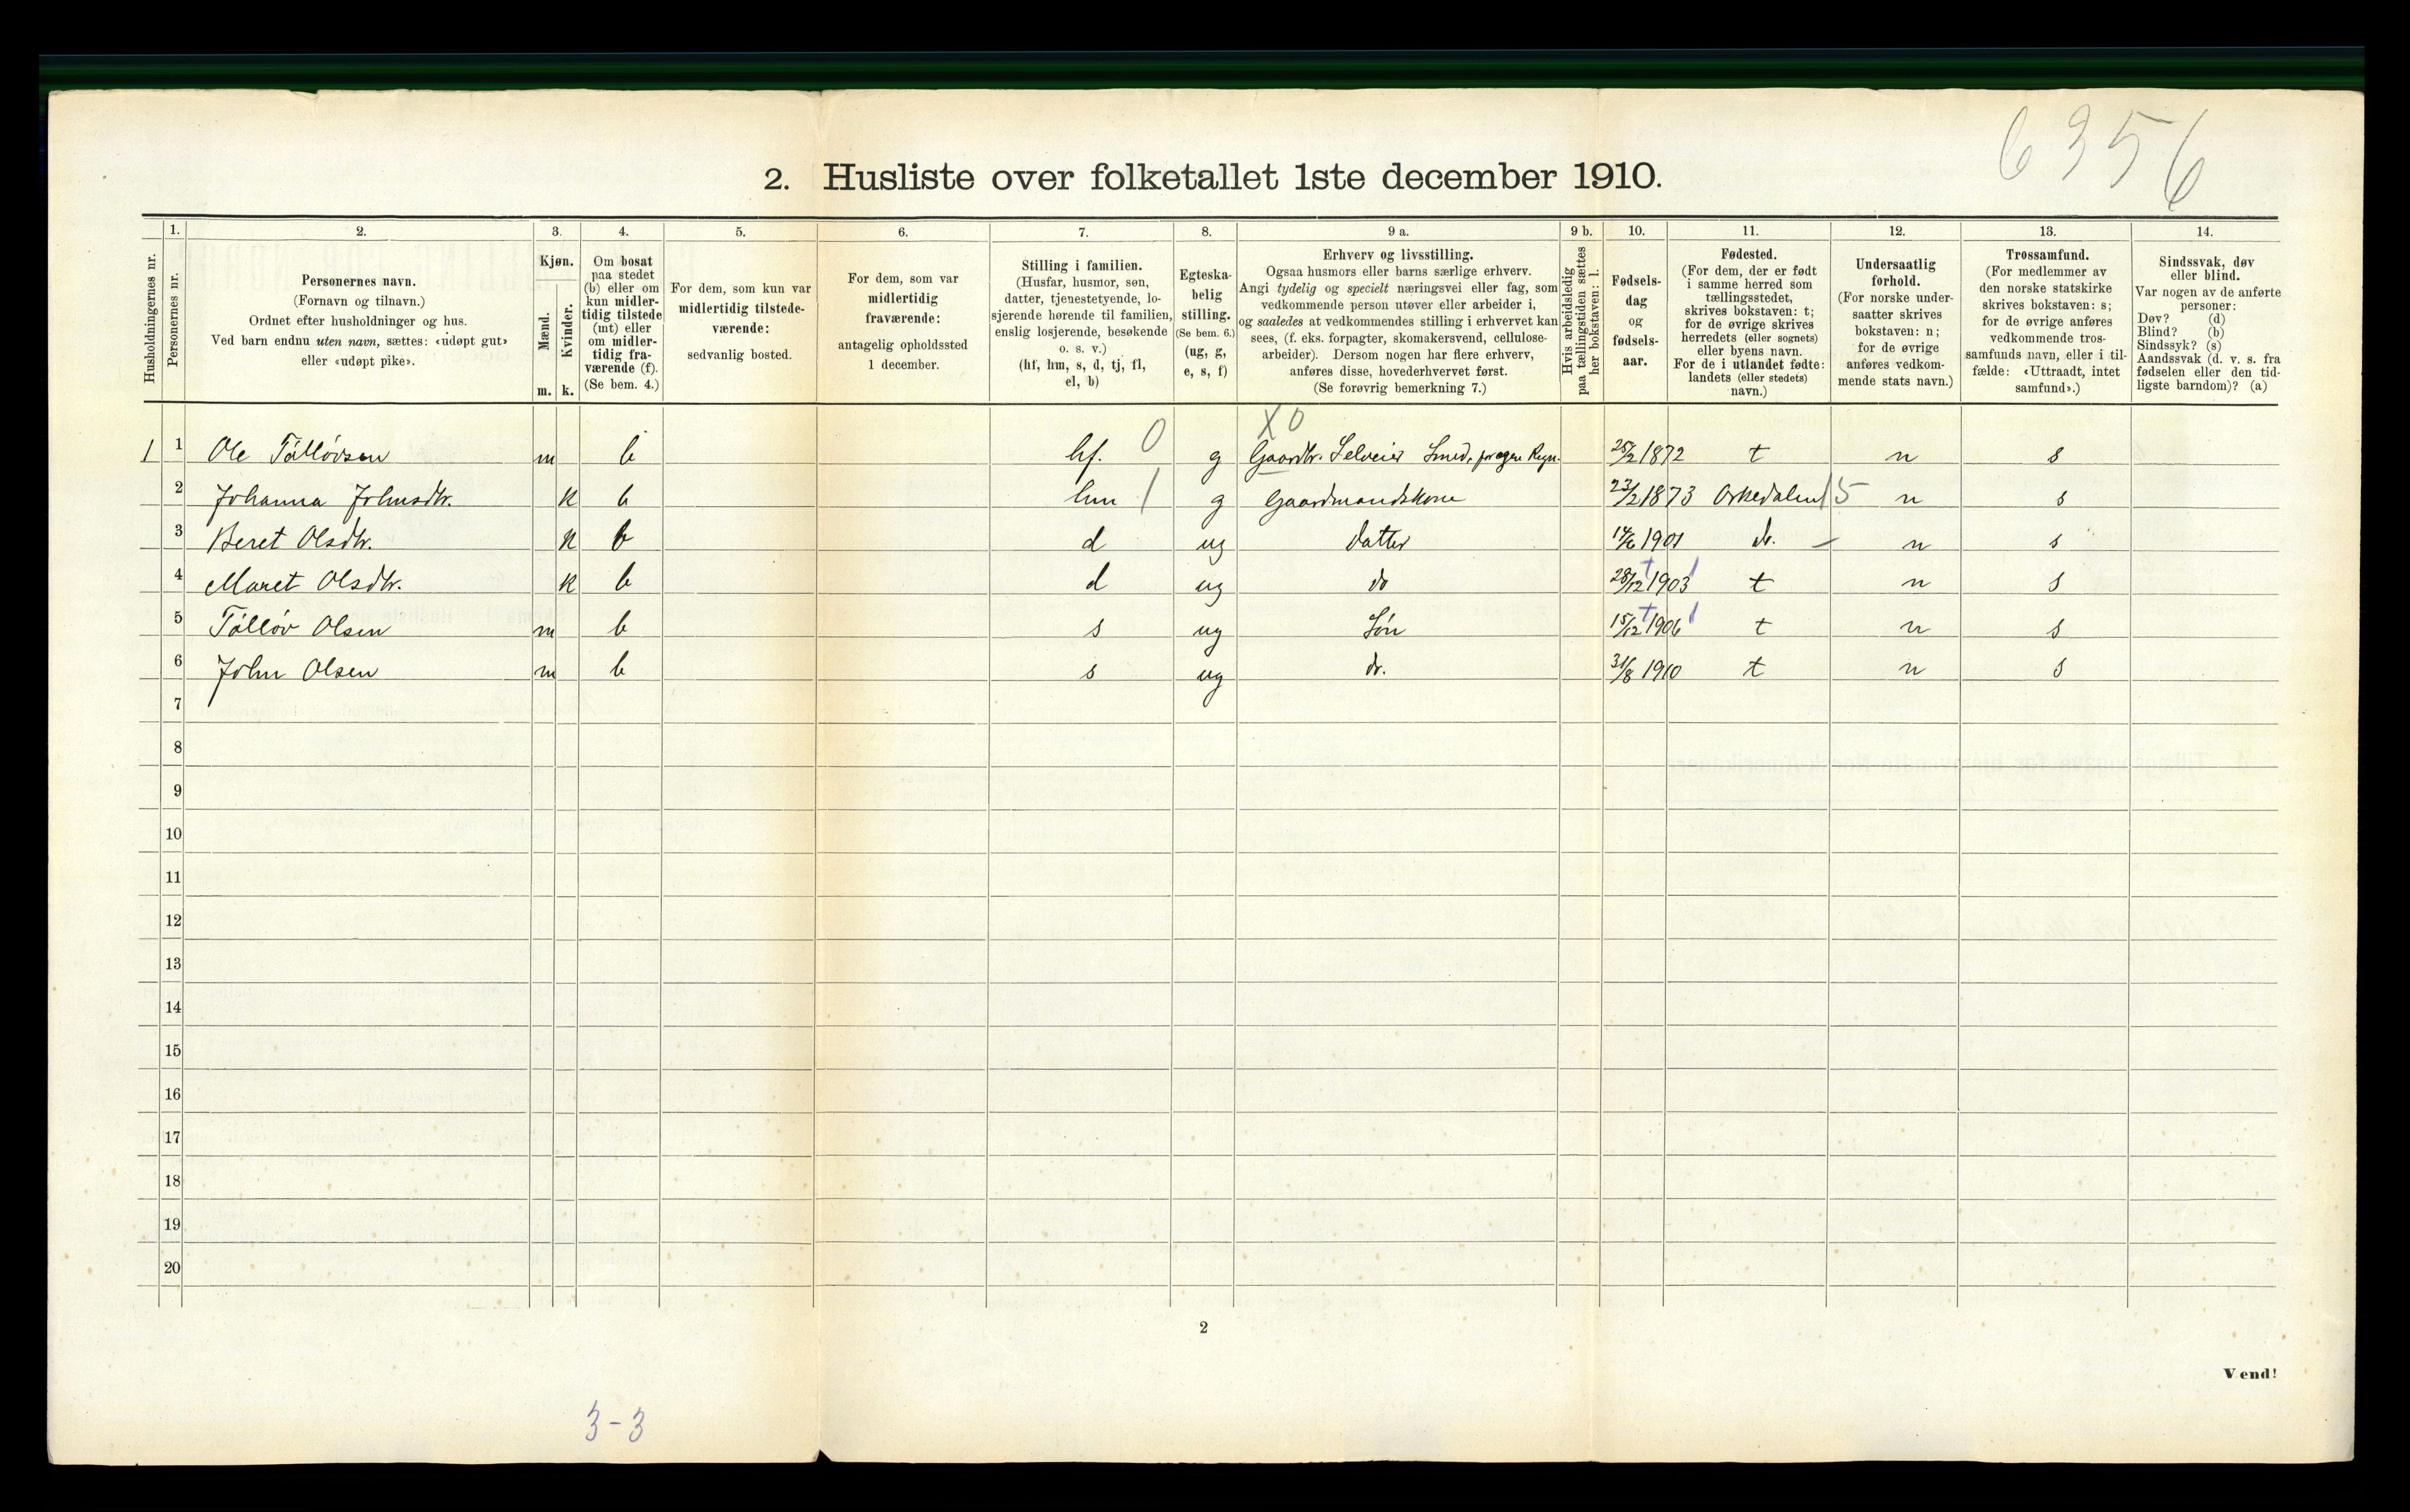 6356
2. Husliste over folketallet 1ste december 1910.
Husholdningernes nr.
1.
Personernes nr.
2.
Personernes navn.
(Fornavn og tilnavn.)
Ordnet efter husholdninger og hus.
Ved barn endnu uten navn, sættes: «udøpt gut»
eller «udøpt pike».
3.
Kjøn.
Mænd.
Kvinder.
m. k.
4.
Om bosat
paa stedet
(b) eller om
kun midler-
tidig tilstede
(mt) eller
om midler-
tidig fra-
værende (f).
(Se bem. 4.)
5.
For dem, som kun var
midlertidig tilstede-
værende:
sedvanlig bosted.
6.
For dem, som var
midlertidig
fraværende:
antagelig opholdssted
1 december.
7.
Stilling i familien.
(Husfar, husmor, søn,
datter, tjenestetyende, lo-
sjerende hørende til familien,
enslig losjerende, besøkende
o. s. v.)
(hf, hm, s, d, tj, fl,
el, b)
8.
Egteska-
belig
stilling.
(Se bem. 6.)
(ug, g,
e, s, f)
9 a.
Erhverv og livsstilling.
Ogsaa husmors eller barns særlige erhverv.
Angi tydelig og specielt næringsvei eller fag, som
vedkommende person utøver eller arbeider i,
og saaledes at vedkommendes stilling i erhvervet kan
sees, (f. eks. forpagter, skomakersvend, cellulose-
arbeider). Dersom nogen har flere erhverv,
anføres disse, hovederhvervet først.
(Se forøvrig bemerkning 7.)
9 b.
Hvis arbeidsledig
paa tællingstiden sættes
her bokstaven: l.
10.
Fødsels-
dag
og
fødsels-
aar.
11.
Fødested.
(For dem, der er født
i samme herred som
tællingsstedet,
skrives bokstaven: t;
for de øvrige skrives
herredets (eller sognets)
eller byens navn.
For de i utlandet fødte:
landets (eller stedets)
navn.)
12.
Undersaatlig
forhold.
(For norske under-
saatter skrives
bokstaven: n;
for de øvrige
anføres vedkom-
mende stats navn.)
13.
Trossamfund.
(For medlemmer av
den norske statskirke
skrives bokstaven: s;
for de øvrige anføres
vedkommende tros-
samfunds navn, eller i til-
fælde: «Uttraadt, intet
samfund».)
14.
Sindssvak, døv
eller blind.
Var nogen av de anførte
personer:
Døv? (d)
Blind? (b)
Sindssyk? (s)
Aandssvak (d. v. s. fra
fødselen eller den tid-
ligste barndom)? (a)
X0
1 1 Ole Tølløvsen m b hf. 0 g Gaardbr. Selveier Smed, for egen Regn. 25/2 1872 t n s
2 Johanna Johnsdtr. k b hm 1 g Gaardmandskone 23/2 1873 Orkedalen 15 n s
3 Beret Olsdtr. k b d ug datter 14/6 1901 do. – n s
4 Maret Olsdtr. k b d ug do 28/12 1903 t n s
5 Tølløv Olsen m b s ug Søn 15/12 1906 t n s
6 John Olsen m b s ug do. 31/8 1910 t n s
7
8
9
10
11
12
13
14
15
16
17
18
19
20
2
Vend!
3-3